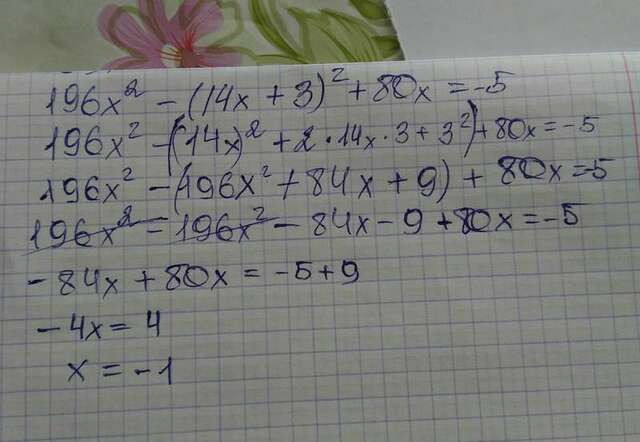 196x² - (14x + 3)² + 80x = -5
196x² - ((14x)² + 2 · 14x · 3 + 3²) + 80x = -5
196x² - (196x² + 84x + 9) + 80x = -5
196x² - 196x² - 84x - 9 + 80x = -5
- 84x + 80x = -5 + 9
- 4x = 4
x = -1